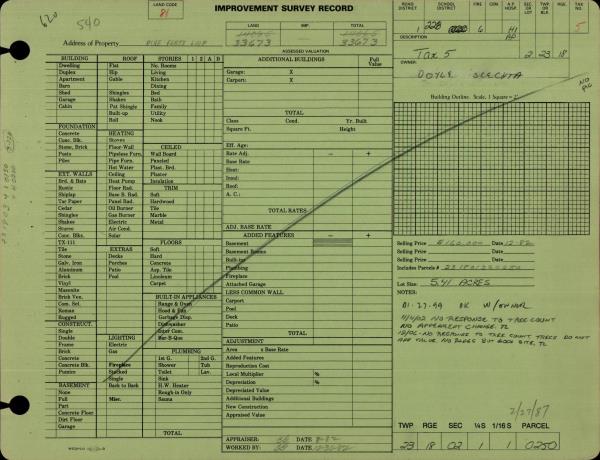 620
540
LAND CODE
81
IMPROVEMENT SURVEY RECORD
LAND IMP. TOTAL
33673 — 33673
Address of Property
ASSESSED VALUATION
ROAD DISTRICT SCHOOL DISTRICT A.P. HOSP. SEC OR LOT TWP OR BLK TAX NO.
228 6 H1 5
DESCRIPTION
Tax 5 2-23-18
OWNER
NO PIC
Building Outline. Scale, 1 Square =
BUILDING ROOF STORIES 1 2 A B
Dwelling Flat No. Rooms
Duplex Hip Living
Apartment Gable Kitchen
Barn Dining
Shed Shingles Bed
Garage Shakes Bath
Cabin Pat Shingle Family
Built-up Utility
Roll Nook
FOUNDATION
Concrete HEATING
Conc. Blk. Stoves CEILED
Stone, Brick Floor-Wall Wall Board
Posts Pipeless Furn. Paneled
Piles Pipe Furn. Plast. Brd.
Hot Water Plaster
EXT. WALLS Ceiling Insulation
Brd. & Bats Heat Pump TRIM
Rustic Floor Rad. Soft
Shiplap Base B. Rad. Hardwood
Tar Paper Panel Rad. Tile
Cedar Oil Burner Marble
Shingles Gas Burner Metal
Shakes Electric
Stucco Air Cond.
Conc. Blks. Solar
TX-111 FLOORS
Tile EXTRAS Soft
Stone Decks Hard
Galv. Iron Porches Concrete
Aluminum Patio Asp. Tile
Brick Pool Linoleum
Vinyl Carpet
Masonite
Brick Ven. BUILT-IN APPLIANCES
Com. Bd. Range & Oven
Roman Hood & Fan
Rugged Garbage Disp.
CONSTRUCT. Dishwasher
Single Inter Com.
Double LIGHTING Bar-B-Que
Frame Electric
Brick Gas PLUMBING
Concrete 1st G. 2nd G.
Concrete Blk. Fireplace Shower Tub
Pumice Stacked Toilet Lav.
Single Sink
BASEMENT Back to Back H.W. Heater
Full Rough-in Only
Part Misc. Sauna
Concrete Floor
Dirt Floor
Garage
TOTAL
ADDITIONAL BUILDINGS Full Value
Garage: X
Carport: X
TOTAL
Class Cond. Yr. Built
Square Ft. Height
Eff. Age:
Rate Adj. — +
Base Rate
Heat:
Insul:
Roof:
A.C.:
TOTAL RATES
ADJ. BASE RATE
ADDED FEATURES — +
Basement
Basement Rooms
Built-ins
Plumbing
Fireplace
Attached Garage
LESS COMMON WALL
Carport
Pool
Deck
Patio
TOTAL
ADJUSTMENT
Area x Base Rate
Added Features
Reproduction Cost
Local Multiplier %
Depreciation %
Depreciated Value
Additional Buildings
New Construction
Appraised Value
APPRAISER: DATE 8-82
WORKED BY: DATE
Selling Price $160,000 Date 12-82
Selling Price Date
Selling Price Date
Includes Parcels #
Lot Size: 5.41 ACRES
NOTES:
01-27-99 OK W/OWNER
11/4/02 NO RESPONSE TO TREE COUNT
NO APPARENT CHANGE. TL
2/27/87
TWP RGE SEC ¼S 1/16 S PARCEL
23 18 02 1 1 0250